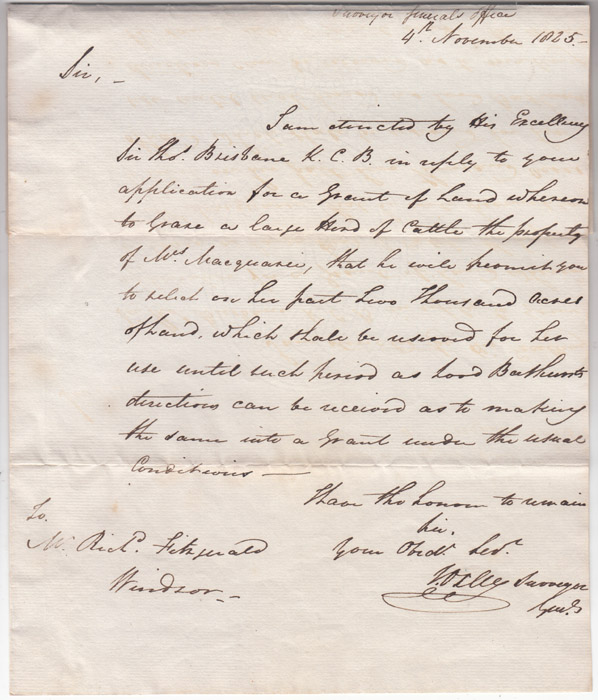 Surveyor Generals Office
4th November 1825 -
Sir, -
I am directed by His Excellency
Sir Thos. Brisbane K. C. B. in reply to your
application for a Grant of Land whereon
to Graze a large Herd of Cattle the property
of Mrs Macquarie, that he will permit you
to select on her part Two Thousand acres
of Land, which shall be reserved for her
use until such period as Lord Bathursts
directions can be received as to making
the same into a Grant under the usual
Conditions -
I have the honour to remain
Sir,
Your Obedt. Sert.
Surveyor
Genl.
To
Mr. Richd. Fitzgerald
Windsor -